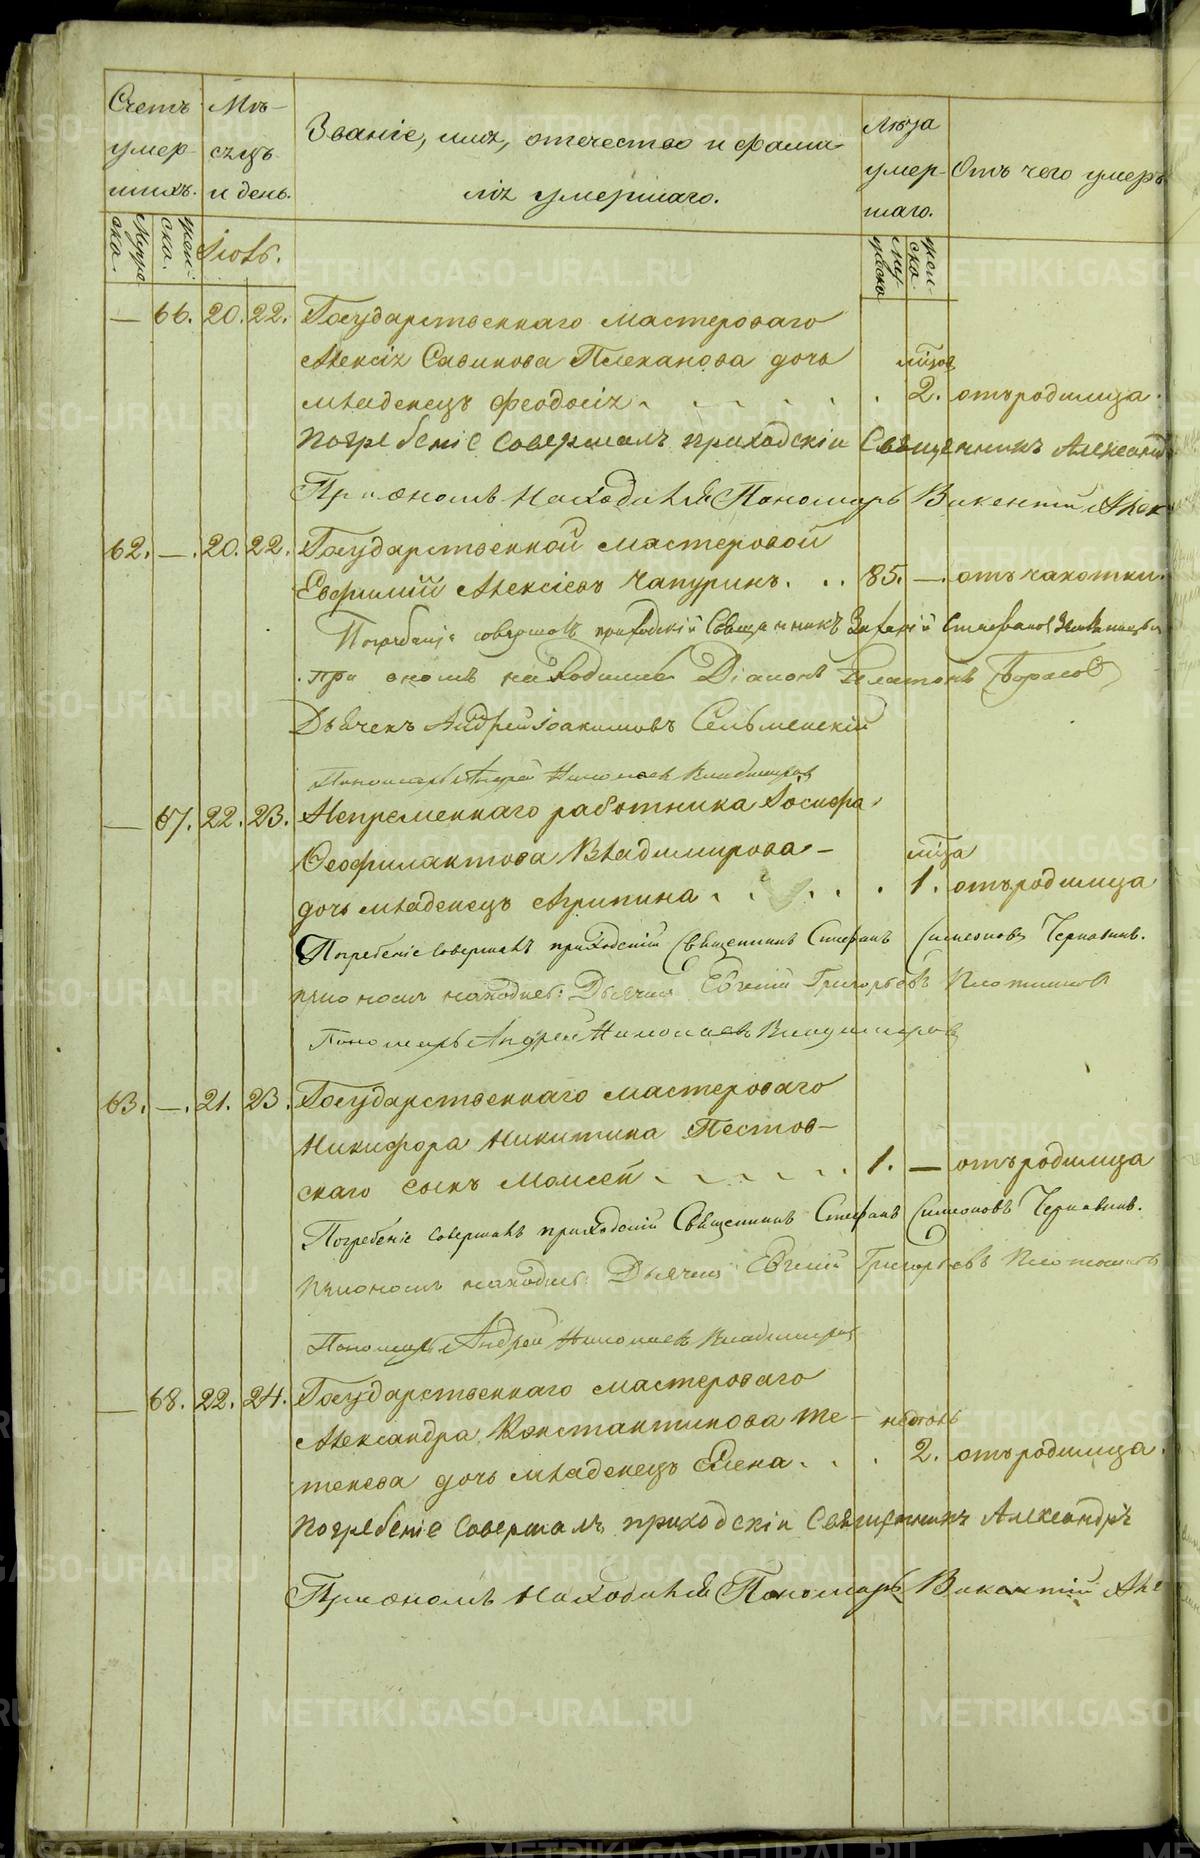 Счетъ умер шихъ.
Мѣ- сяцъ и день.
Званіе, имя, отечество и фами- лія умершаго.
Лѣта умер- шаго.
Отъ чего умеръ
Мужеска. женска.
Іюль.
мужеска женска.
— 66. 20. 22. Государственнаго мастероваго
Алексія Савинова Плеханова дочь
младенецъ Феодосія . . . . . 2. отъ родимца.
Погребеніе совершалъ приходскій Священникъ Александ
При ономъ находился Пономарь Викентій
62. — . 20. 22. Государственной мастеровой
Евфимій Алексіевъ Чапуринъ. . . 85. — . отъ чахотки.
Погребеніе совершалъ приходскій Священникъ Стефановъ
при ономъ находились Діаконъ Платонъ
Дьячекъ Андрей Іоакимовъ Сельменскій
Пономарь Андрей Николаевъ Владимировъ
— 67. 22. 23. Непременнаго работника Іосифа
Феофилактова Владимирова — лѣта
дочь младенецъ Агрипина . . . . 1. отъ родимца
Погребеніе совершалъ приходскій Священникъ Стефанъ Симеоновъ Чернавинъ.
при ономъ находись: Дьячекъ Евгеній Григорьевъ Плотниковъ
Пономарь Андрей Николаевъ Владимировъ
63. — . 21. 23. Государственнаго мастероваго
Никифора Никитина Пестов-
скаго сынъ Моисей . . . . . 1. — отъ родимца
Погребеніе совершалъ приходскій Священникъ Стефанъ Симеоновъ Чернавинъ.
при ономъ находись: Дьячекъ Евгеній Григорьевъ Плотниковъ
Пономарь Андрей Николаевъ Владимировъ
— 68. 22. 24. Государственнаго мастероваго
Александра Константинова Те-
тенева дочь младенецъ Елена . . . 2. отъ родимца.
Погребеніе совершалъ приходскій Священникъ Александръ
При ономъ находился Пономарь Викентій
METRIKI.GASO-URAL.RU